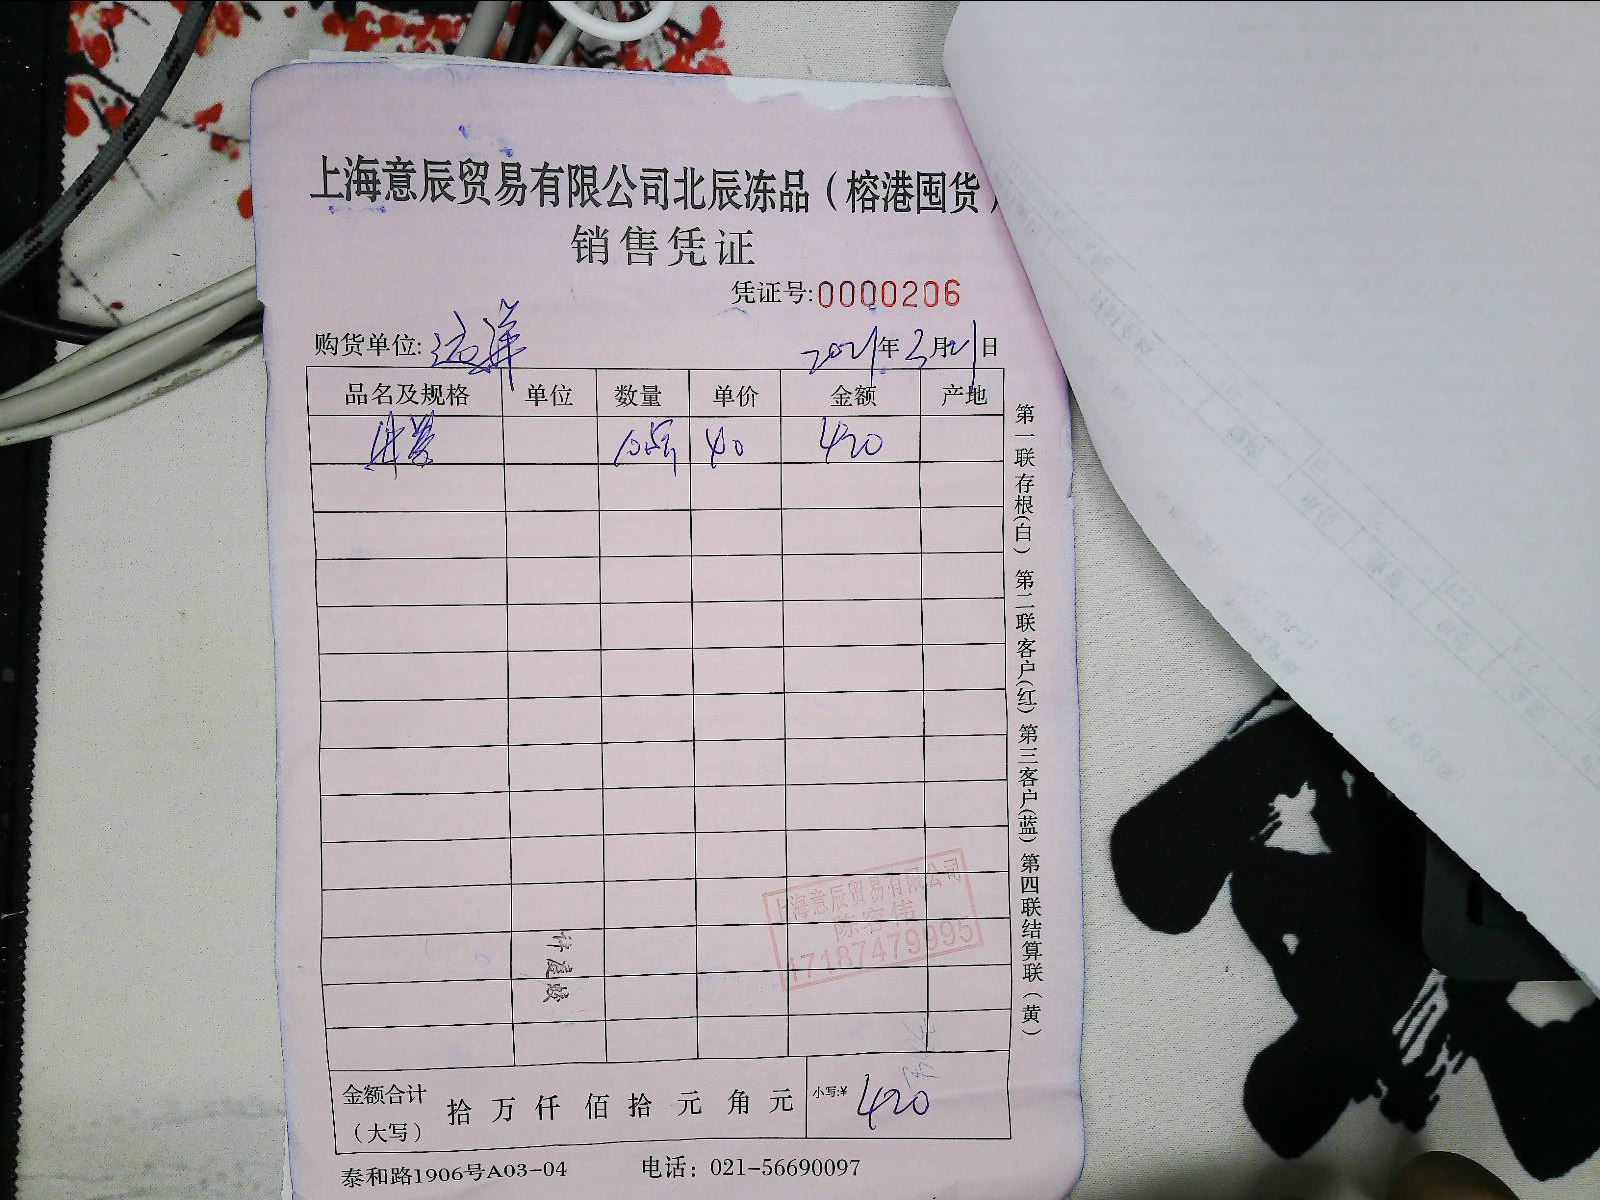 上海意辰贸易有限公司北辰冻品（榕港囤货）
销售凭证
凭证号:0000206
购货单位: 远洋 2021年3月21日
品名及规格 单位 数量 单价 金额 产地
40 420
第一联存根(白) 第二联客户(红) 第三客户(蓝) 第四联结算联(黄)
上海意辰贸易有限公司
17187479995
金额合计 拾 万 仟 佰 拾 元 角 元 小写:¥ 420
（大写）
泰和路1906号A03-04 电话：021-56690097